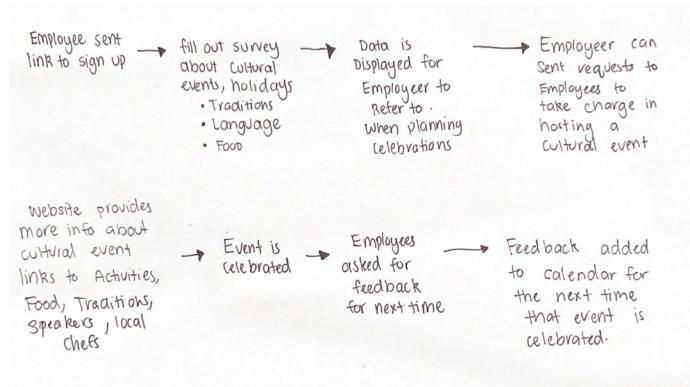 Employee sent
link to sign up
fill out survey
about cultural
events, holidays
• Traditions
• Language
• Food
Data is
Displayed for
Employeer to
Refer to.
When planning
celebrations
Employeer can
sent requests to
Employees to
take charge in
hosting a
cultural event
Website provides
more info about
cultural event
links to Activities,
Food, Traditions,
Speakers, local
Chefs
Event is
celebrated
Employees
asked for
feedback
for next time
Feedback added
to calendar for
the next time
that event is
celebrated.